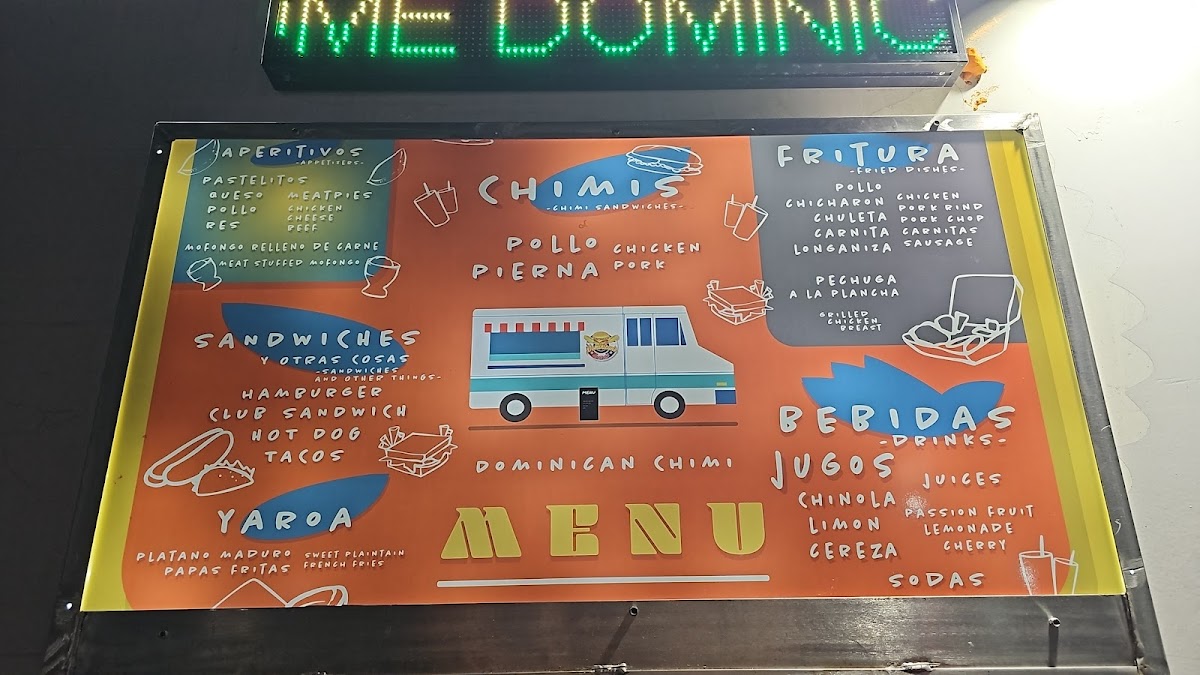 'ME DOMINIC
APERITIVOS
-APPETIZERS-
PASTELITOS
QUESO MEATPIES
POLLO CHICKEN
RES CHEESE
BEEF
MOFONGO RELLENO DE CARNE
MEAT STUFFED MOFONGO
SANDWICHES
Y OTRAS COSAS
-SANDWICHES
AND OTHER THINGS-
HAMBURGER
CLUB SANDWICH
HOT DOG
TACOS
YAROA
PLATANO MADURO SWEET PLAINTAIN
PAPAS FRITAS FRENCH FRIES
CHIMIS
-CHIMI SANDWICHES-
POLLO CHICKEN
PIERNA PORK
MENU
DOMINICAN CHIMI
MENU
FRITURA
-FRIED DISHES-
POLLO CHICKEN
CHICHARON PORK RIND
CHULETA PORK CHOP
CARNITA CARNITAS
LONGANIZA SAUSAGE
PECHUGA
A LA PLANCHA
GRILLED
CHICKEN
BREAST
BEBIDAS
-DRINKS-
JUGOS JUICES
CHINOLA PASSION FRUIT
LIMON LEMONADE
CEREZA CHERRY
SODAS